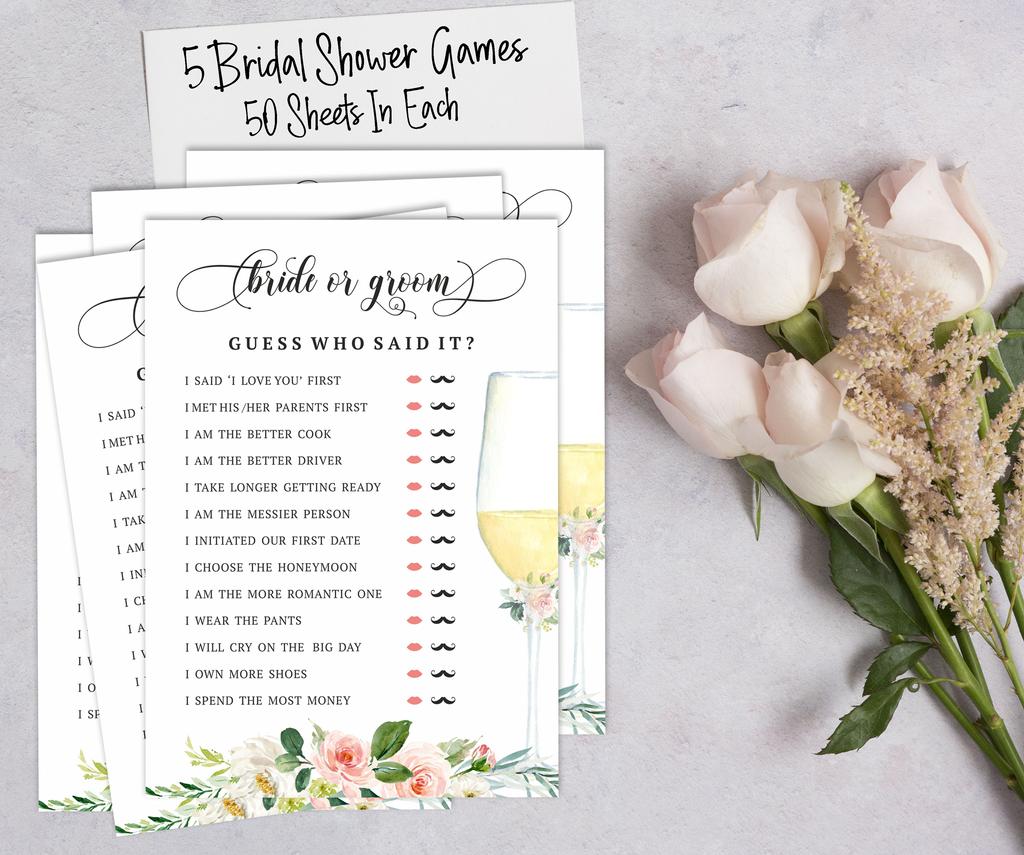 5 Bridal Shower Games
50 Sheets In Each
bride or groom
GUESS WHO SAID IT?
I SAID ‘I LOVE YOU’ FIRST
I MET HIS/HER PARENTS FIRST
I AM THE BETTER COOK
I AM THE BETTER DRIVER
I TAKE LONGER GETTING READY
I AM THE MESSIER PERSON
I INITIATED OUR FIRST DATE
I CHOOSE THE HONEYMOON
I AM THE MORE ROMANTIC ONE
I WEAR THE PANTS
I WILL CRY ON THE BIG DAY
I OWN MORE SHOES
I SPEND THE MOST MONEY
G
I SAID ‘
I MET H
I AM T
I AM T
I TAK
I AM
I INI
I CH
I A
I W
I
I
I
I
I
I
I W
I O
I SP